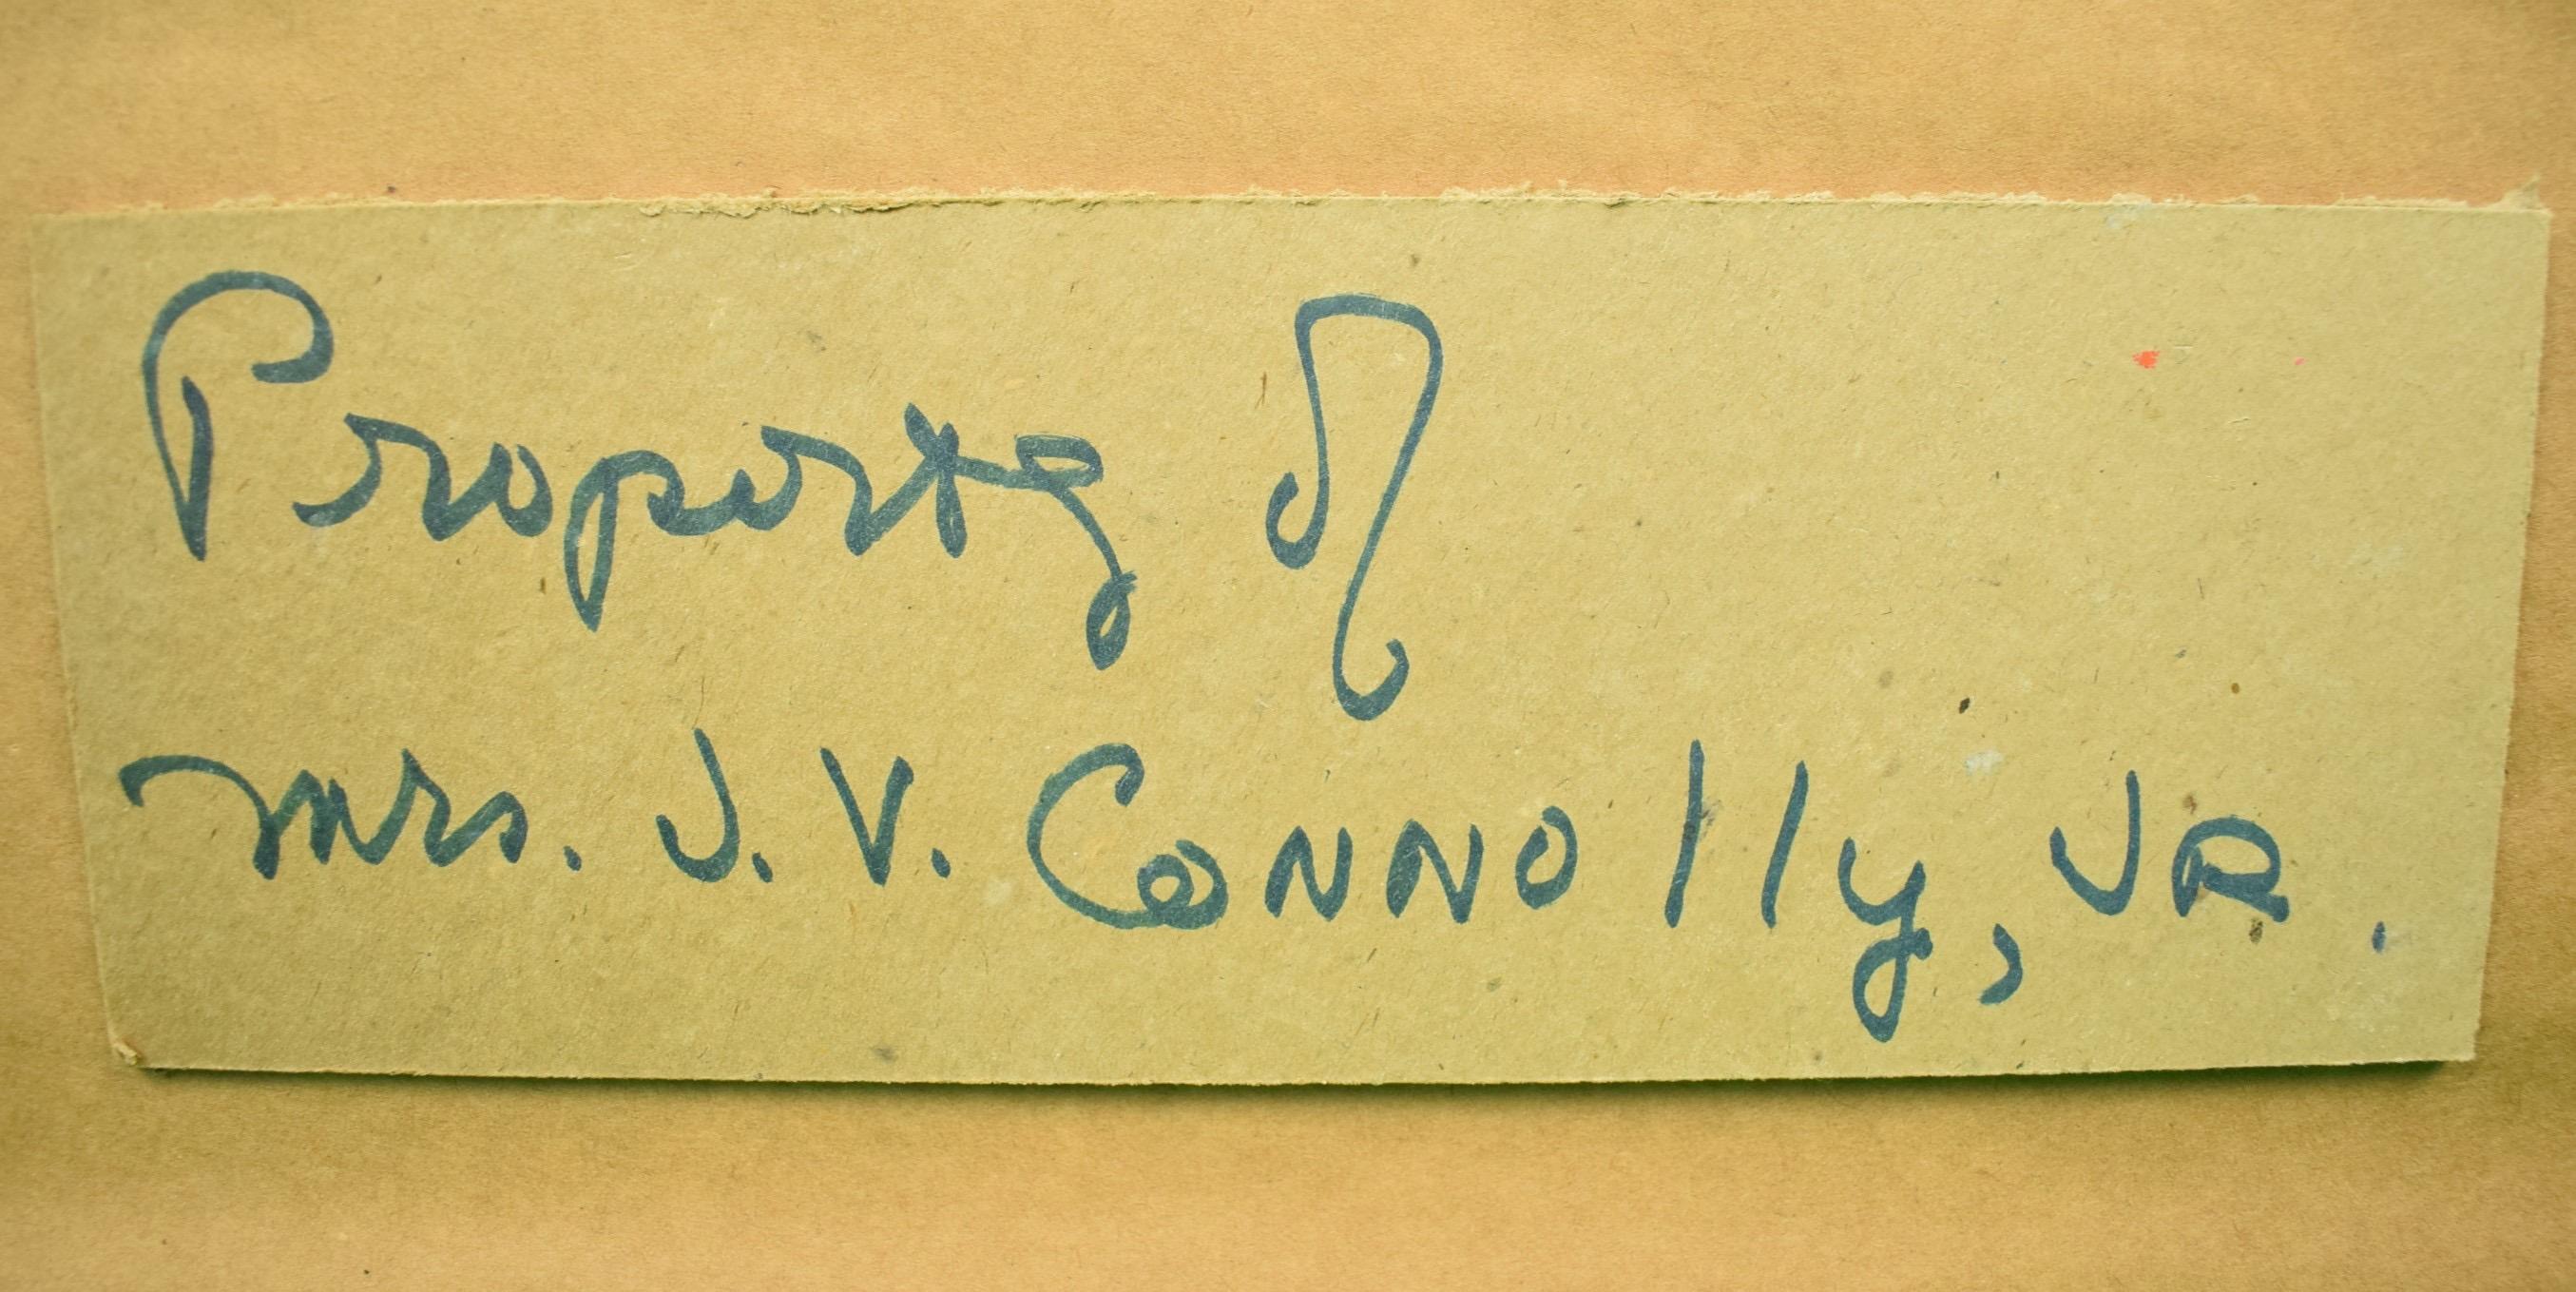 Property of
Mrs. J. V. Connolly, JR.